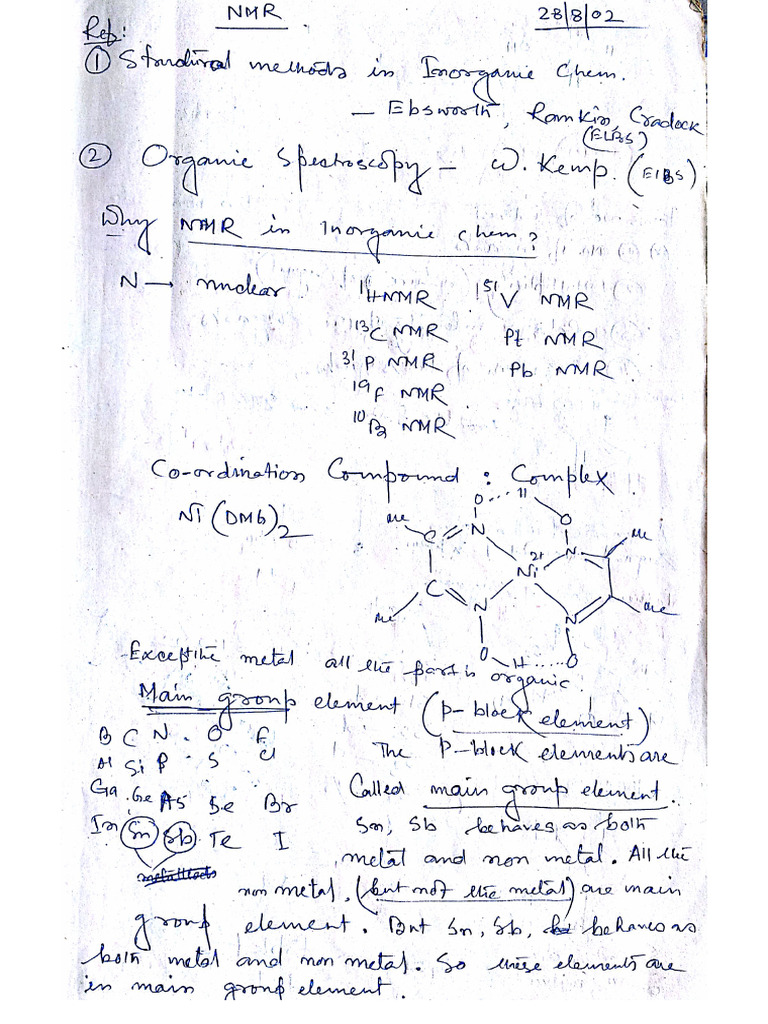 NMR 28/8/02
Ref:
① Structural methods in Inorganic Chem.
— Ebsworth, Rankin, Cradock
(ELBS)
② Organic Spectroscopy — W. Kemp. (ElBS)
Why NMR in Inorganic Chem.?
N → nuclear ¹H NMR ⁵¹V NMR
¹³C NMR Pt NMR
³¹P NMR Pb NMR
¹⁹F NMR
¹⁰B NMR
Co-ordination Compound : Complex
Ni(DMG)₂
O H
Me C N O
N Me
Ni 2+
C N N Me
Me
O H O
Except the metal all the part is organic.
Main group element (p-block element)
B C N O F
Al Si P S Cl
Ga Ge As Se Br
In Sn Sb Te I
The p-block elements are
Called main group element.
Sn, Sb behaves as both
metal and non metal. All the
non metal, (but not the metal) are main
group element. But Sn, Sb, behaves as
both metal and non metal. So these elements are
in main group element.